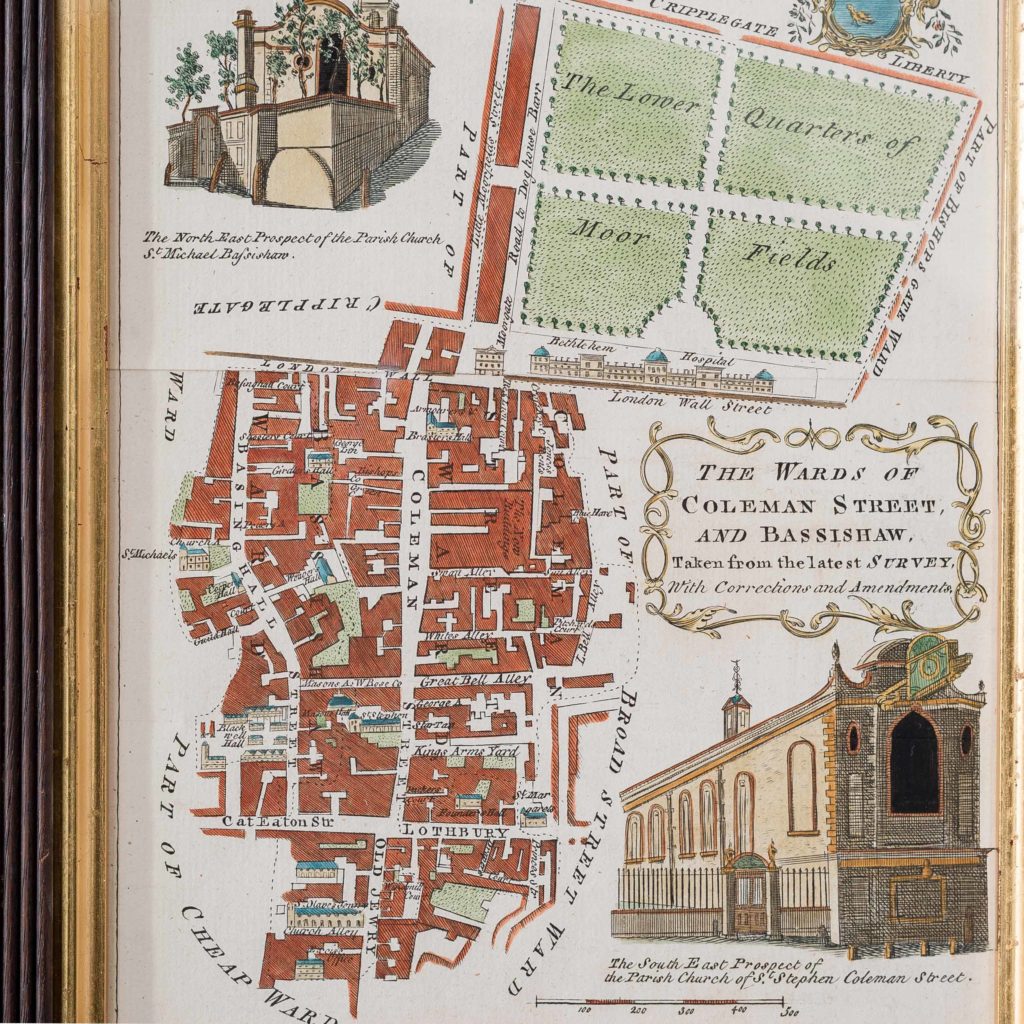 CRIPPLEGATE
LIBERTY
The Lower
Quarters of
Moor
Fields
PART OF BISHOPS GATE WARD
Little Moorfields Street
Road to Doghouse Barr
PART OF
CRIPPLEGATE
WARD
The North East Prospect of the Parish Church
St. Michael Bassishaw.
Moorgate
Bethlehem Hospital
London Wall Street
LONDON WALL
THE WARDS OF
COLEMAN STREET,
AND BASSISHAW,
Taken from the latest SURVEY,
With Corrections and Amendments.
Basinghall Court
Armourers
Brasiers Hall
George Inn
Girdlers Hall
BASINGHALL STREET
COLEMAN STREET
WARD
PART OF
BROAD STREET WARD
Church A
St. Michaels
Guildhall
Swan Alley
Whites Alley
Bell A
Great Bell Alley
Masons A
George A
Star
St. Stephen
Black
well
Hall
Kings Arms Yard
Founders Hall
St. Mar
garets
Cat Eaton Str.
LOTHBURY
OLD JEWRY
Princes Str
Church Alley
PART OF
CHEAP WARD
The South East Prospect of
the Parish Church of St. Stephen Coleman Street.
100 200 300 400 500